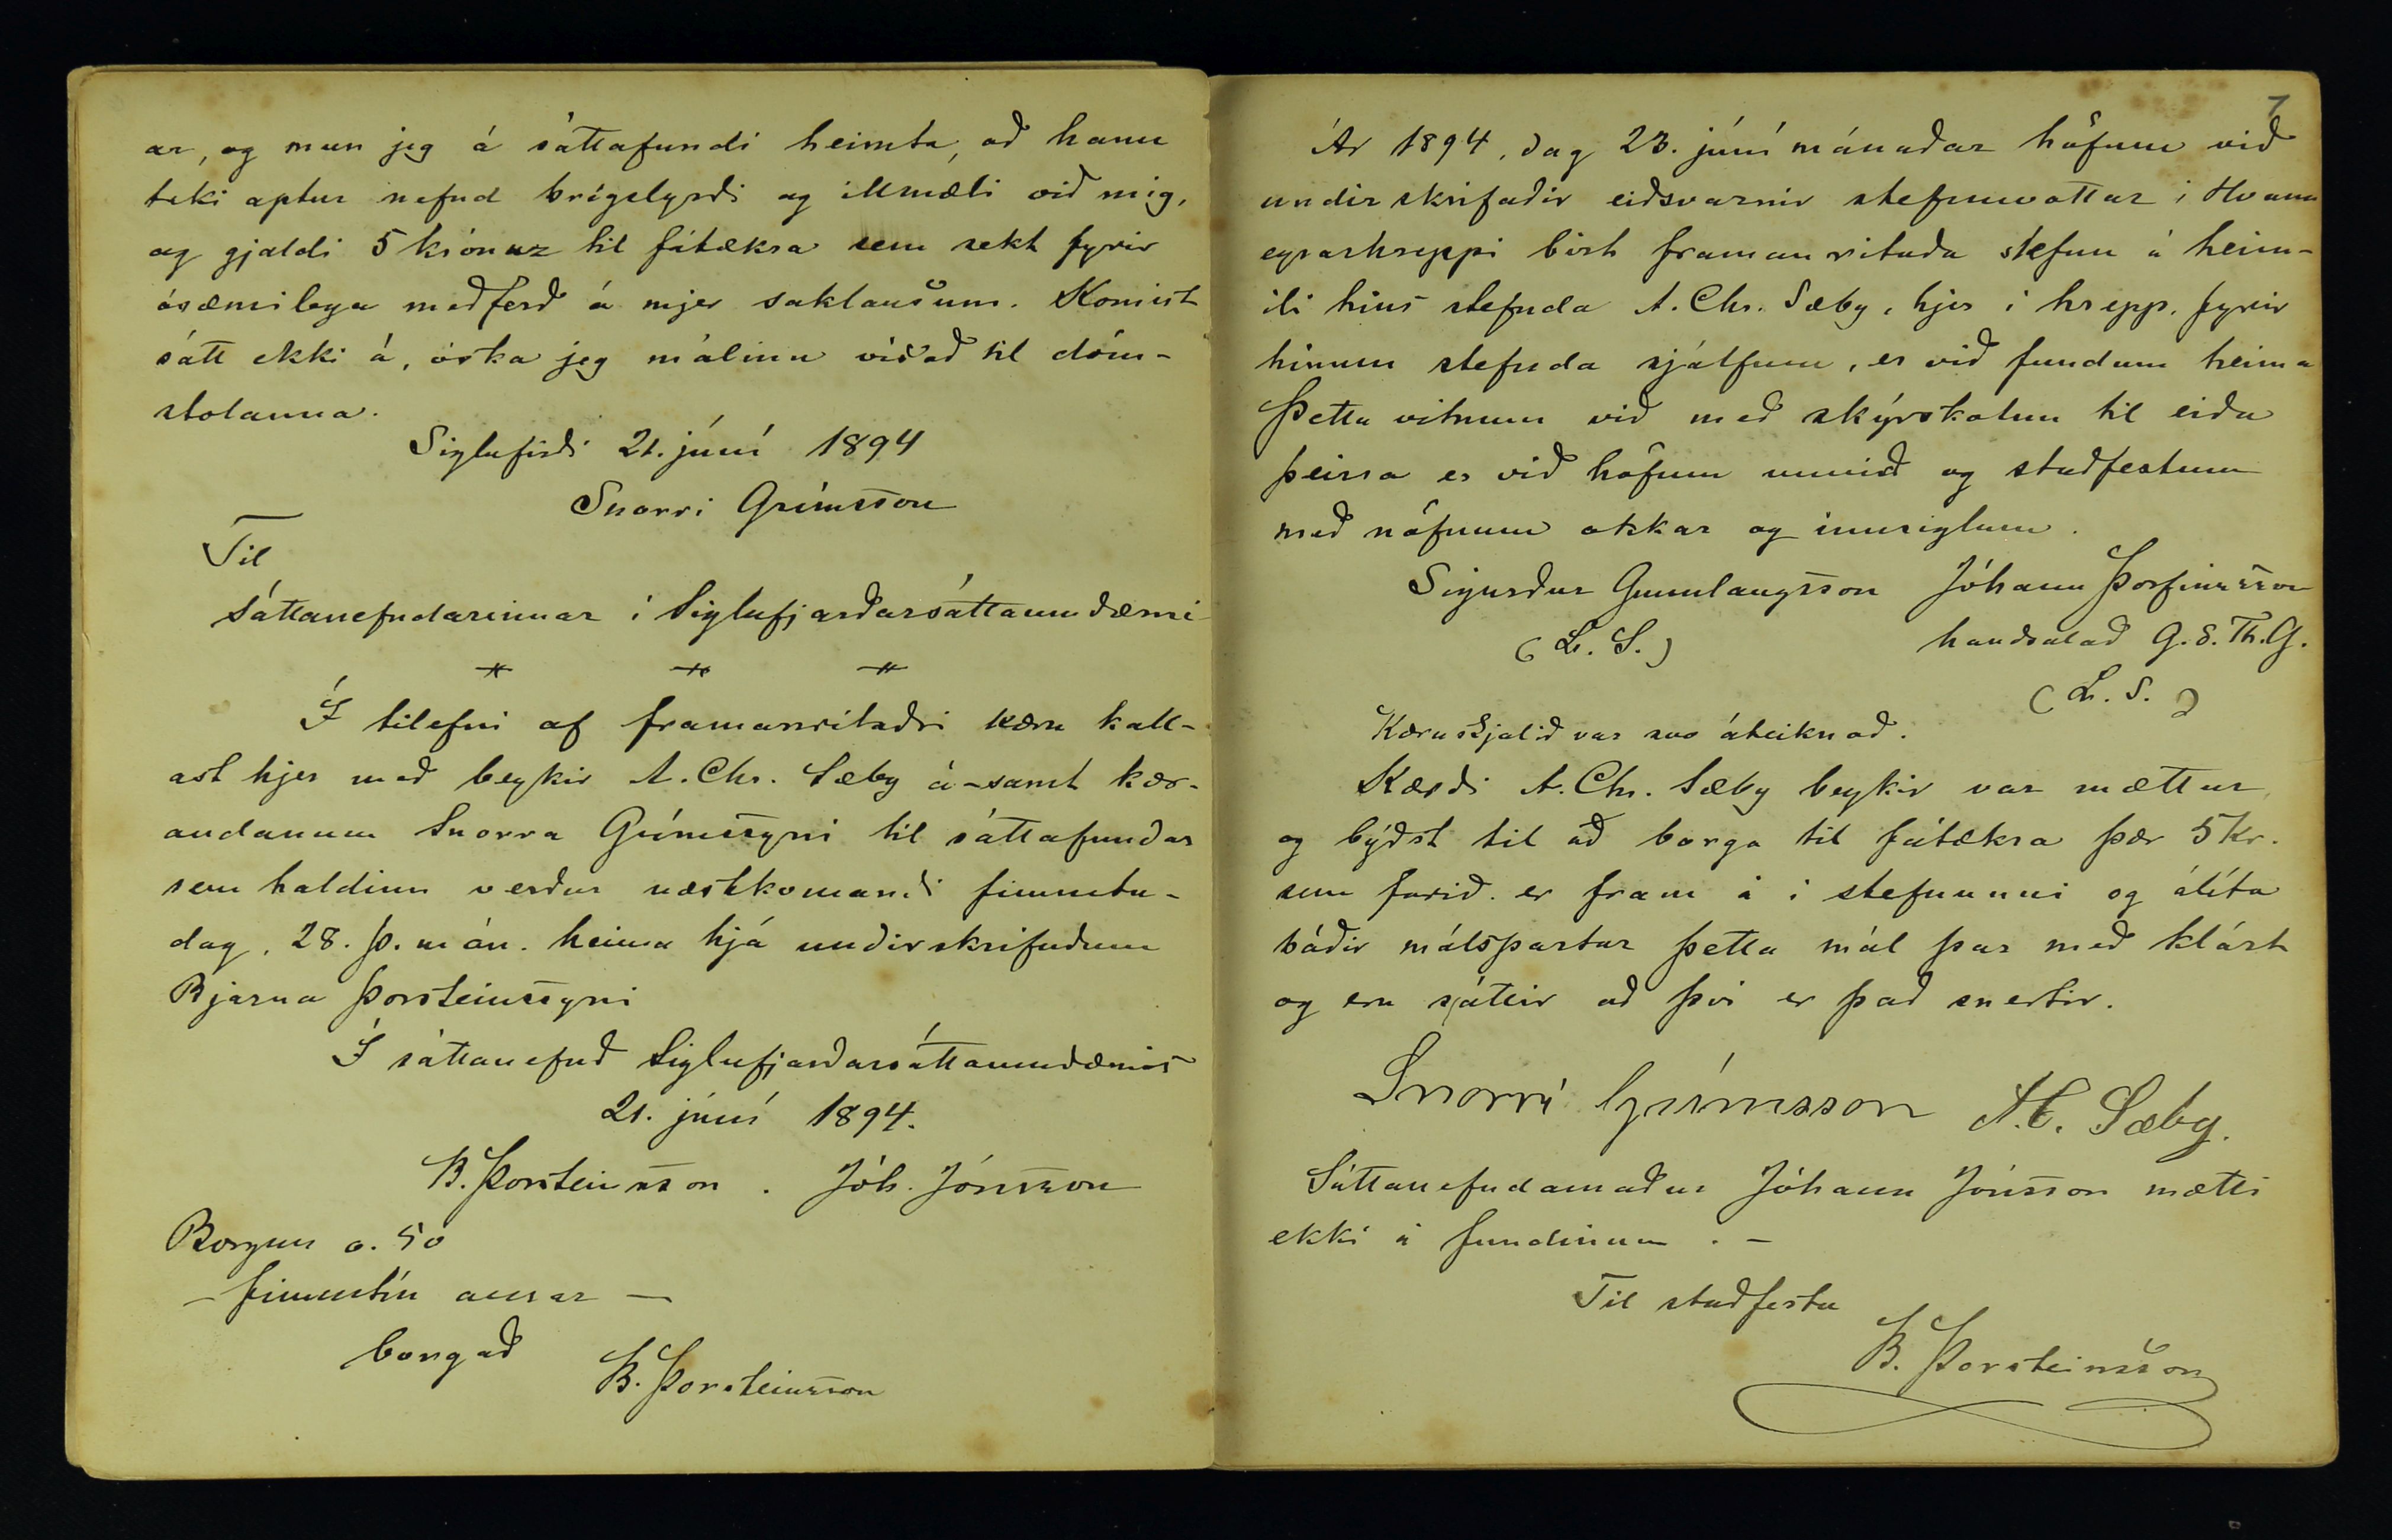 ar, og mun jeg á sáttafundi heimta, að hann
taki aptur nefnd brígslyrði og illmæli við mig,
og gjaldi 5 krónur til fátækra sem sekt fyrir
ósæmilega meðferð á mjer saklausum. Komist
sátt ekki á, óska jeg málinu vísað til dóm-
stolanna.
Siglufirði 21. júní 1894
Snorri Grímsson
Til
sáttanefndarinnar í Siglufjarðarsáttaumdæmi
Í tilefni af framanritaðri kæru kall-
ast hjer með beykir A. Chr. Sæby á-samt kær-
andanum Snorra Grímssyni til sáttafundar
sem haldinn verður næstkomandi fimmtu-
dag, 28. þ. mán. heima hjá undirskrifuðum
Bjarna Þorsteinssyni
Í sáttanefnd Siglufjarðarsáttaumdæmis
21. júní 1894.
B. Þorsteinsson . Jóh. Jónsson
Borgun 0.50
- fimmtíu aurar -
borgað
B. Þorsteinsson
7
Ár 1894, dag 23. júní mánaðar höfum við
undirskrifaðir eiðsvarnir stefnuvottar í Hvann
eyrarhreppi birt framanritaða stefnu á heim-
ili hins stefnda A. Chr. Sæby, hjer í hrepp, fyrir
hinum stefnda sjálfum, er við fundum heima
Þetta vitnum við með skýrskotun til eiða
þeirra er við höfum unnið og staðfestum
með nöfnum okkar og innsiglum.
Sigurður Gunnlaugsson Jóhann Þorfinnsson
(L. S.) handsalað G. S. Th. G.
(L. S.)
Kæruskjalið var svo áteiknað.
Kærði A. Chr. Sæby beykir var mættur,
og býðst til að borga til fátækra þær 5 Kr.
sem farið er fram á í stefnunni og álíta
báðir málspartar þetta mál þar með klárt
og eru sáttir að því er það snertir.
Snorri Grímsson A.C. Sæby.
Sáttanefndamaður Jóhann Jónsson mætti
ekki á fundinum . -
Til staðfestu
B. Þorsteinsson